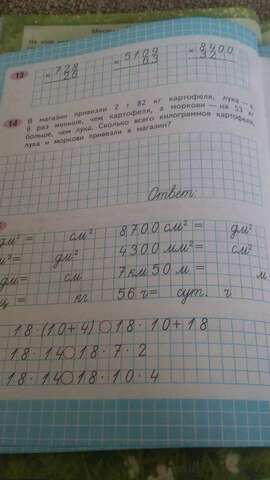 13
× 728
26
× 5100
63
× 8400
32
14
В магазин привезли 2 т 82 кг картофеля, лука — в
6 раз меньше, чем картофеля, а моркови — на 53 кг
больше, чем лука. Сколько всего килограммов картофеля,
лука и моркови привезли в магазин?
Ответ:
дм² = см² 8700 см² = дм²
м² = дм² 4300 мм² = см²
дм = см 7 км 50 м = м
ц = кг 56 ч = сут. ч
18·(10+4) ○ 18·10+18
18·14 ○ 18·7·2
18·14 ○ 18·10·4